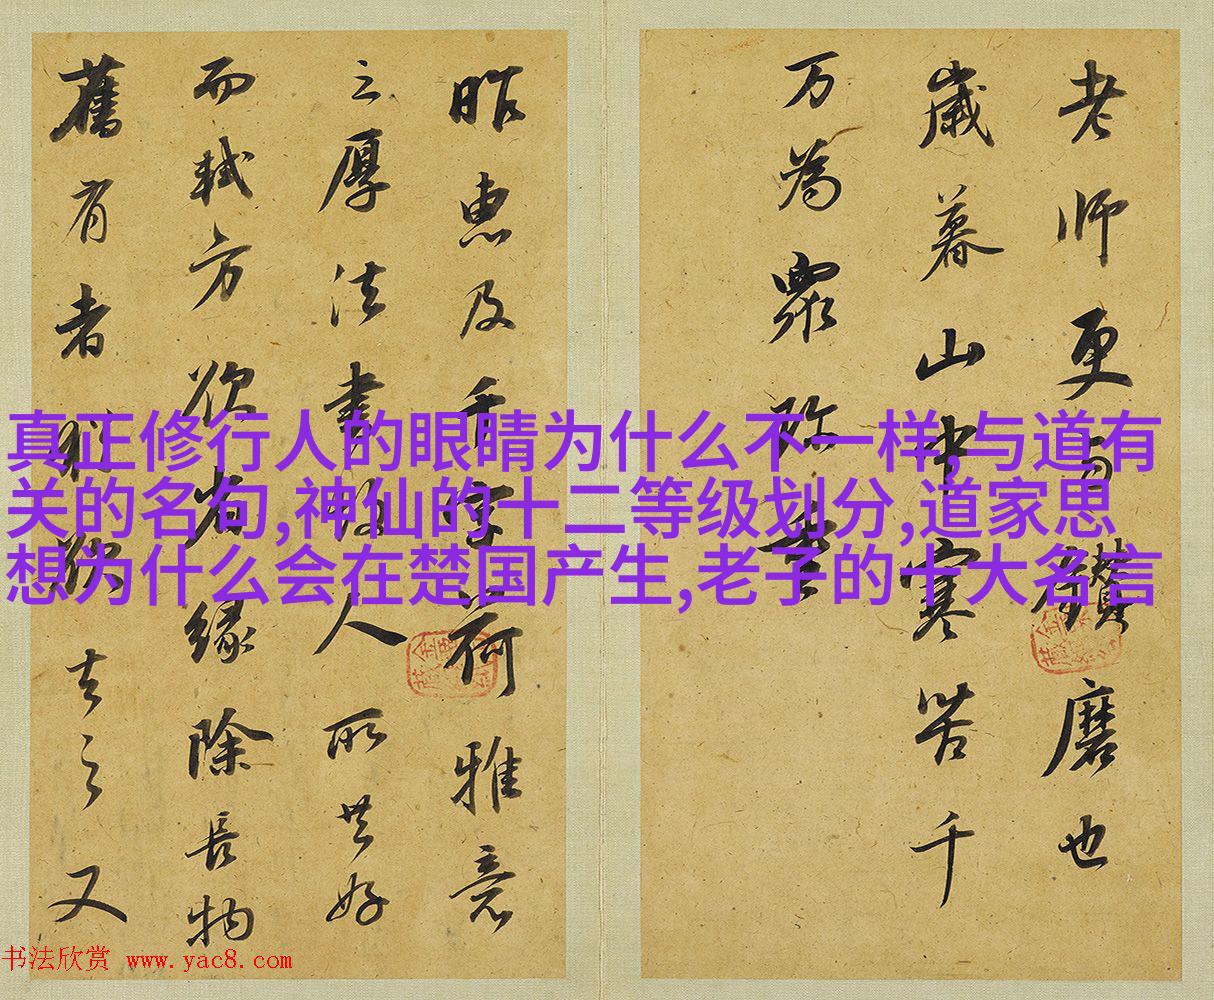 真正修行人的眼睛为什么不一样,与道有
关的名句,神仙的十二等级划分,道家思
想为什么会在楚国产生,老子的十大名言
老师更与鑚磨也
歲暮山中寒苦千
万為衆珎重
昨惠及千字荷雅意
之厚法書人所共好
而軾方欲省緣除長物
舊有者猶欲去之又
书法欣赏 www.yac8.com